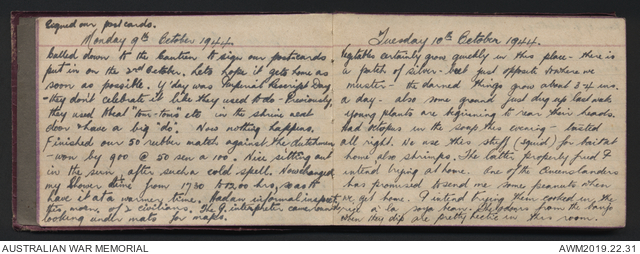 signed our postcards.
Monday 9th October 1944.
Called down to the Canteen to sign our postcards,
put in on the 2nd October. Let's hope it gets home as
soon as possible. Y'day was Imperial Rescript Day
- they don't celebrate it like they used to do. Previously,
they used "tom-toms" etc in the shrine next
door & have a big "do". Now nothing happens.
Finished our 50 rubber match against the Dutchmen
- won by 900 @ 50 sen a 100. Nice sitting out
in the sun after such a cold spell. Now changed
my shower time from 1730 to 1200 hrs, so as to
have it at a warmer time. Had an informal inspect
this morn. of 2 civilians. The J. interpreter came round
looking under mats for maps.
Tuesday 10th October 1944.
Vegetables certainly grow quickly in this place - there is
a patch of silver-beet just opposite where we
muster - the darned things grow about 3-4 ins.
a day - also some ground just dug up last week
young plants are beginning to rear their heads.
Had octopus in the soup this evening - tasted
all right. We use this stuff (squid) for bait at
home, also shrimps. The latter properly fried I
intend trying at home. One of the Queenslanders
has promised to send me some peanuts when
we get home. I intend trying them cooked in the
rice a la soya bean. The odours from the
when they dip are pretty hectic in this room.
AUSTRALIAN WAR MEMORIAL
AWM2019.22.31